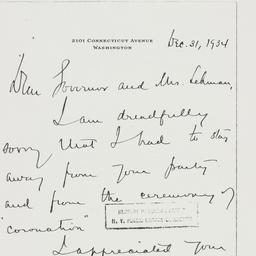 2101 Connecticut Avenue
Washington
Dec. 31, 1934
Dear Governor and Mrs. Lehman,
I am dreadfully
sorry that I had to stay
away from your party
and from the ceremony of
"coronation"
I appreciated your